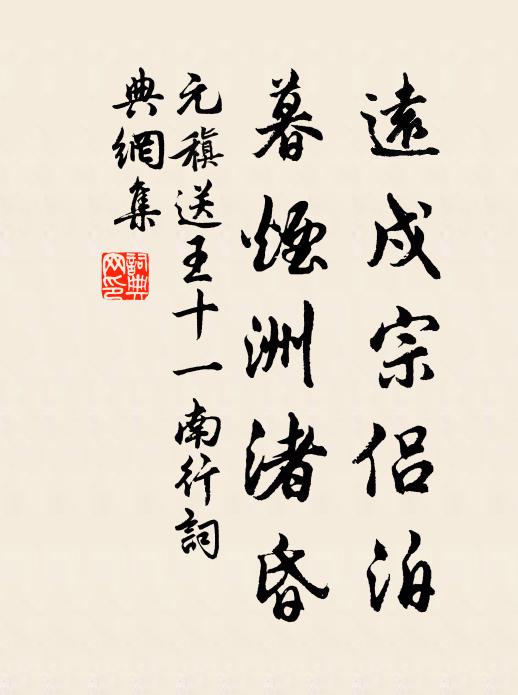 遠戍宗侶泊
暮煙洲渚昏
元稹送王十一南行詞
典網集
詞典網印